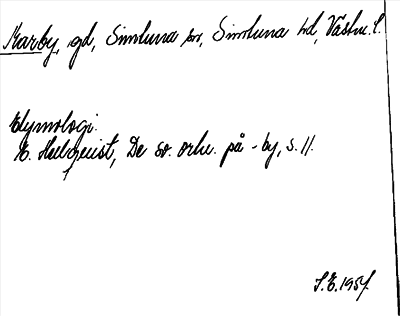 Karby, gd, Simtuna sn, Simtuna hd, Västm. l.
Etymologi.
E. Hellquist, De sv. ortn. på -by, s. 11.
S.E. 1954.